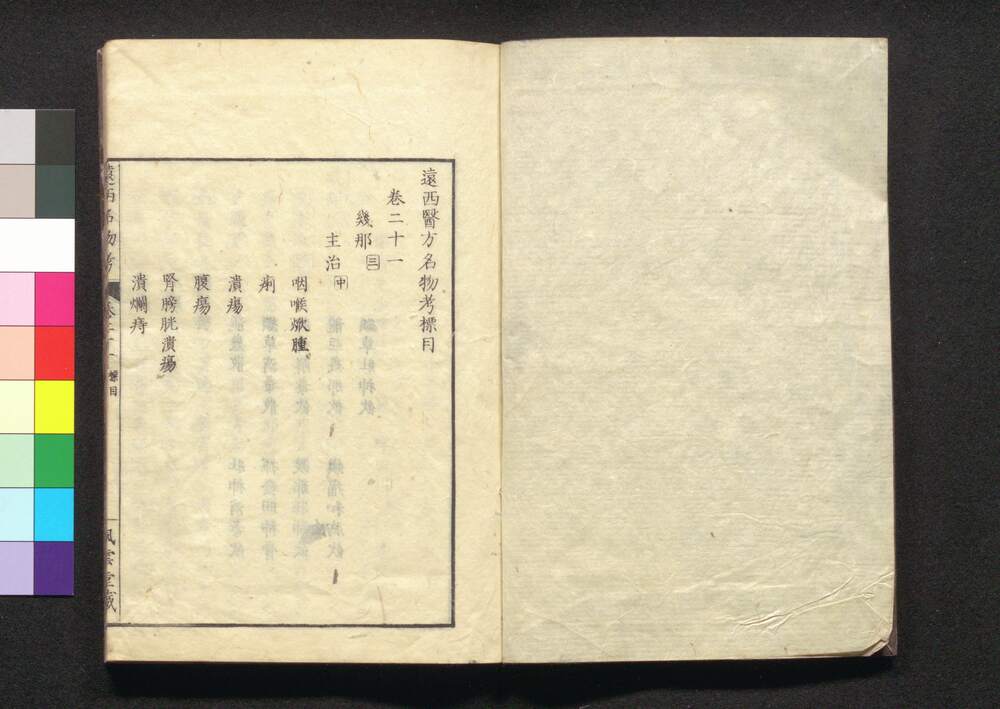 遠西醫方名物考標目
卷二十一
幾那 三
主治 中
咽喉焮腫
痢
潰瘍
腹瘍
腎膀胱潰瘍
潰爛痔
遠西名物考 卷二十一 標目 風雲堂藏